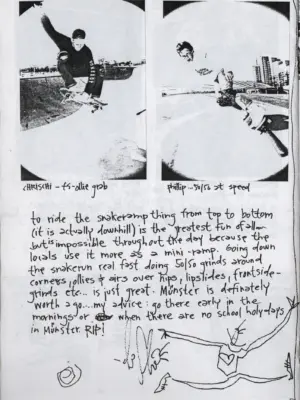 CHRISCHI - fs-ollie grab
phillip - 50/50 at speed
to ride the snakeramp thing from top to bottom
(it is actually downhill) is the greatest fun of all
but is impossible throughout the day because the
locals use it more as a mini-ramp. Going down
the snakerun real fast doing 50/50 grinds around
corners, ollies & airs over hips, lipslides, frontside-
grinds etc... is just great. Münster is definately
worth a go... my advice: go there early in the
mornings or when there are no school holydays
in Münster. RIP!